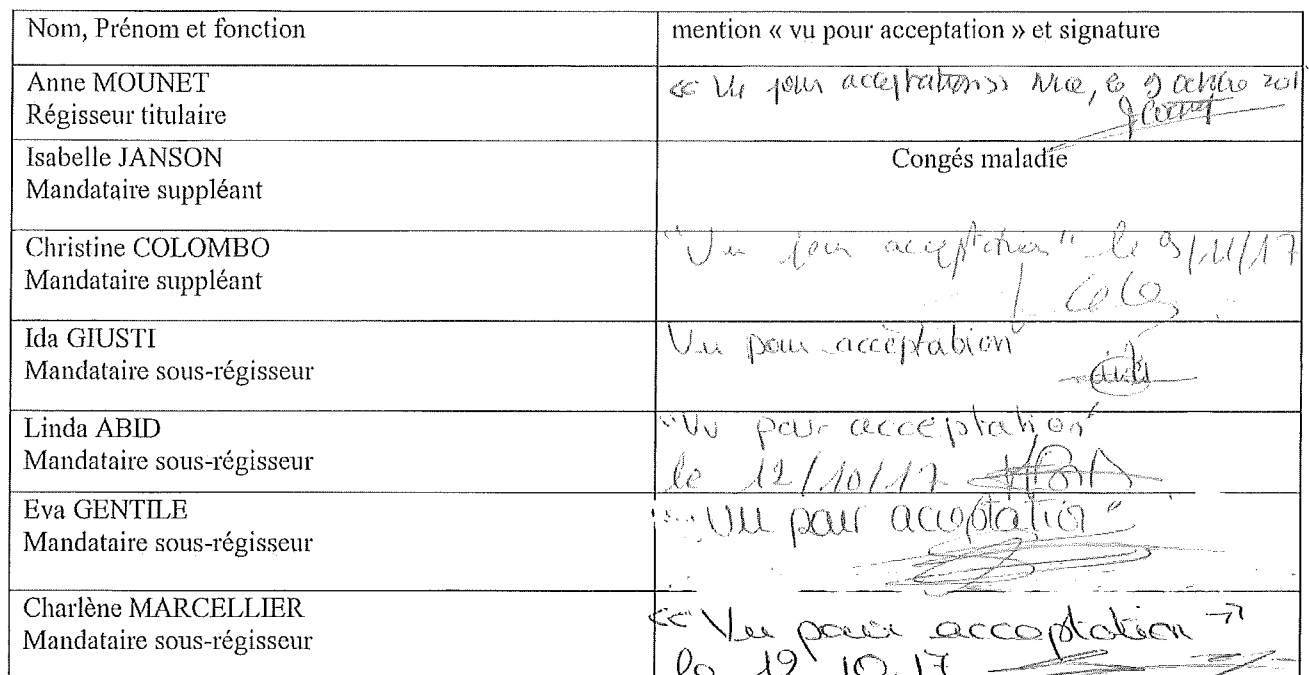 Nom, Prénom et fonction
mention « vu pour acceptation » et signature
Anne MOUNET
Régisseur titulaire
« Vu pour acceptation » Nice, le 9 octobre 201
Isabelle JANSON
Mandataire suppléant
Congés maladie
Christine COLOMBO
Mandataire suppléant
"Vu pour acceptation" le 9/11/17
Ida GIUSTI
Mandataire sous-régisseur
Vu pour acceptation
Linda ABID
Mandataire sous-régisseur
"Vu pour acceptation"
le 12/10/17
Eva GENTILE
Mandataire sous-régisseur
"Vu pour acceptation"
Charlène MARCELLIER
Mandataire sous-régisseur
« Vu pour acceptation »
le 19 10.17